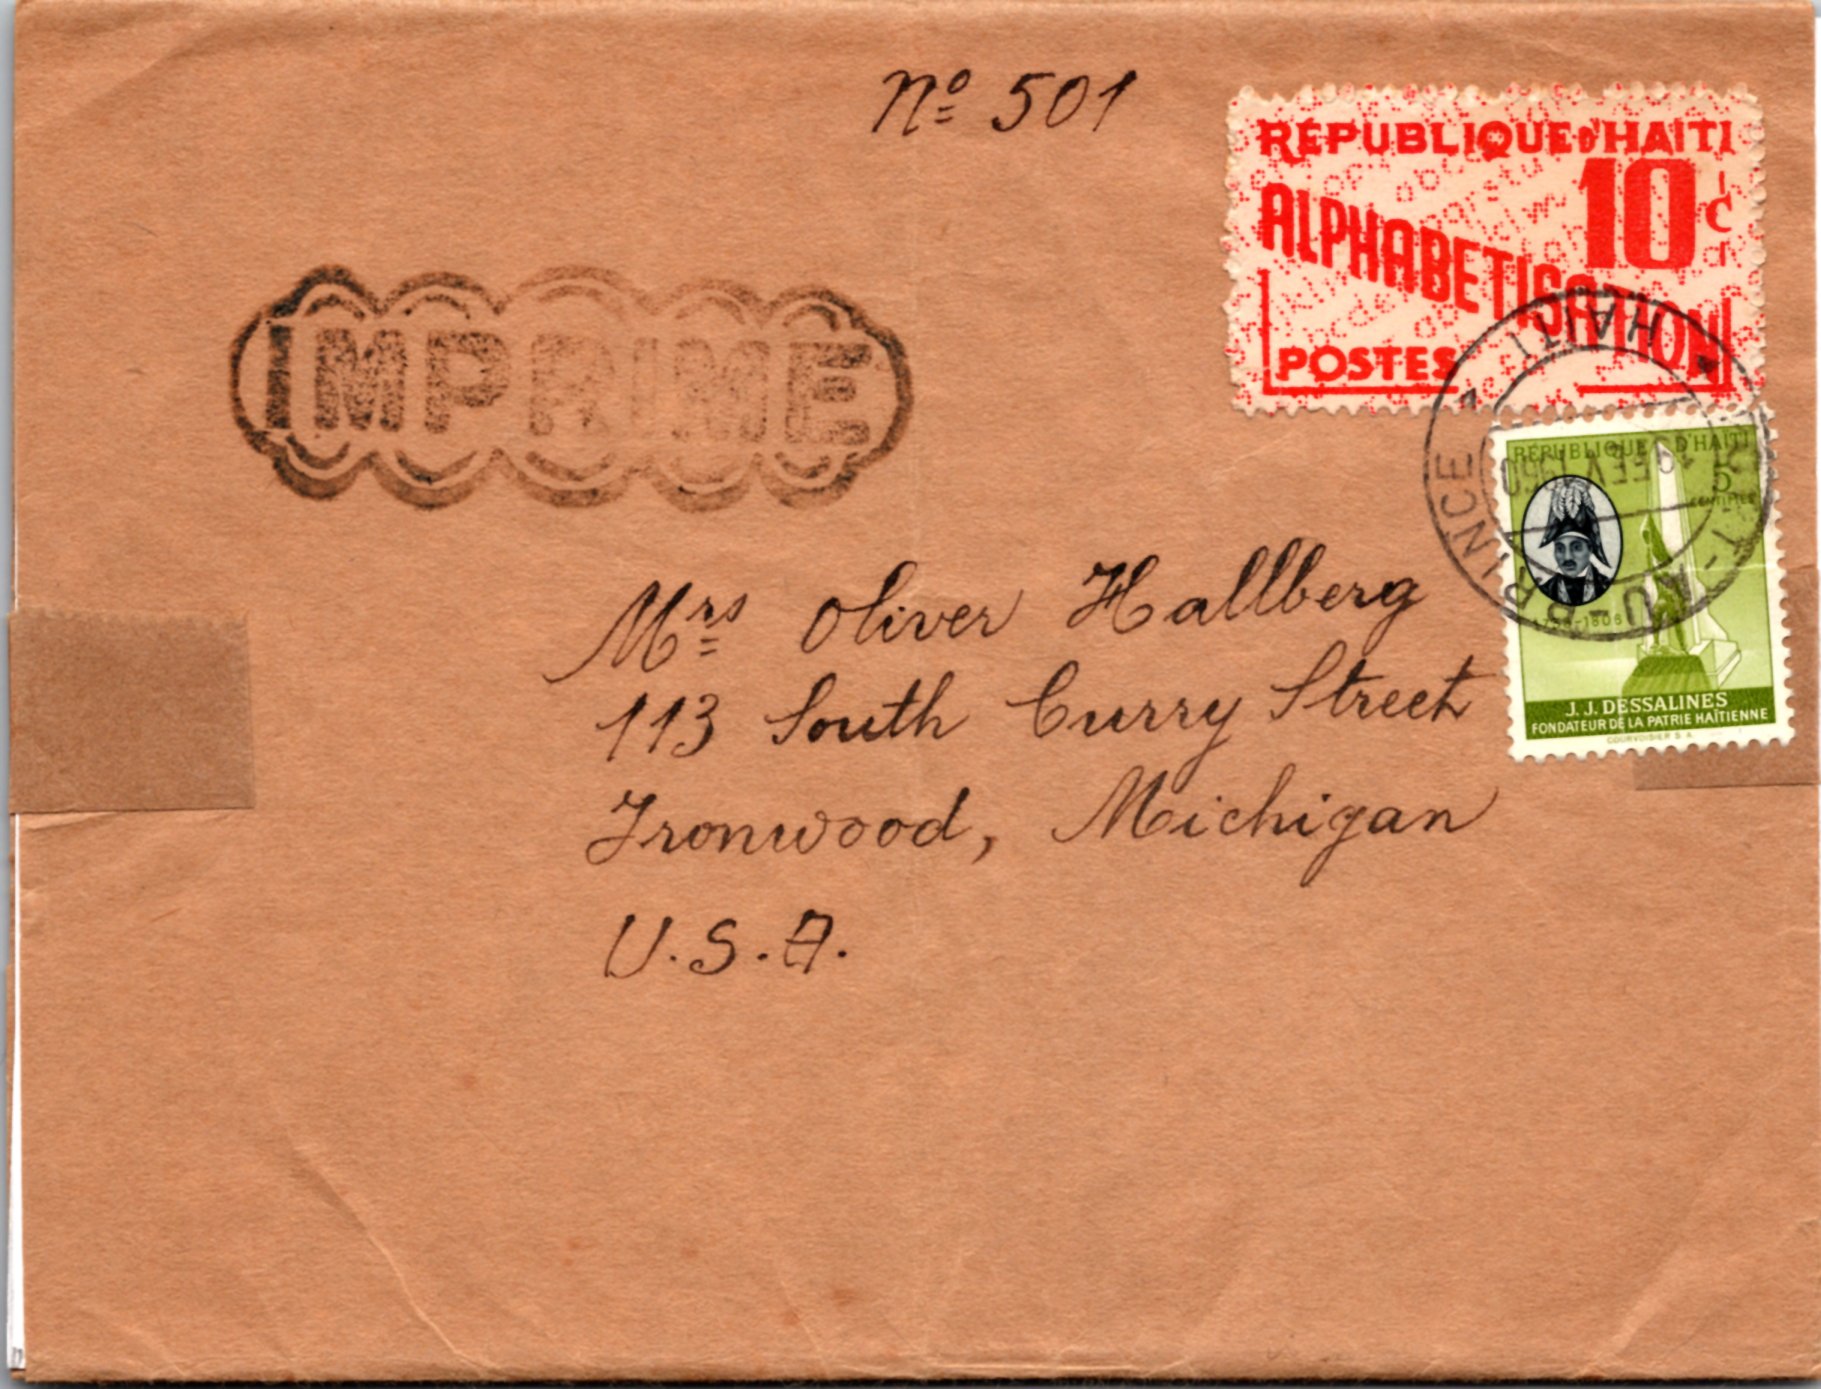 Nº 501
RÉPUBLIQUE D'HAITI
10 c
ALPHABÉTISATION
POSTES
IMPRIME
HAITI
AU-PRINCE
FEV
RÉPUBLIQUE D'HAITI
5
CENTIMES
-1806
J. J. DESSALINES
FONDATEUR DE LA PATRIE HAÏTIENNE
COURVOISIER S.A.
Mrs Oliver Hallberg
113 South Curry Street
Ironwood, Michigan
U.S.A.